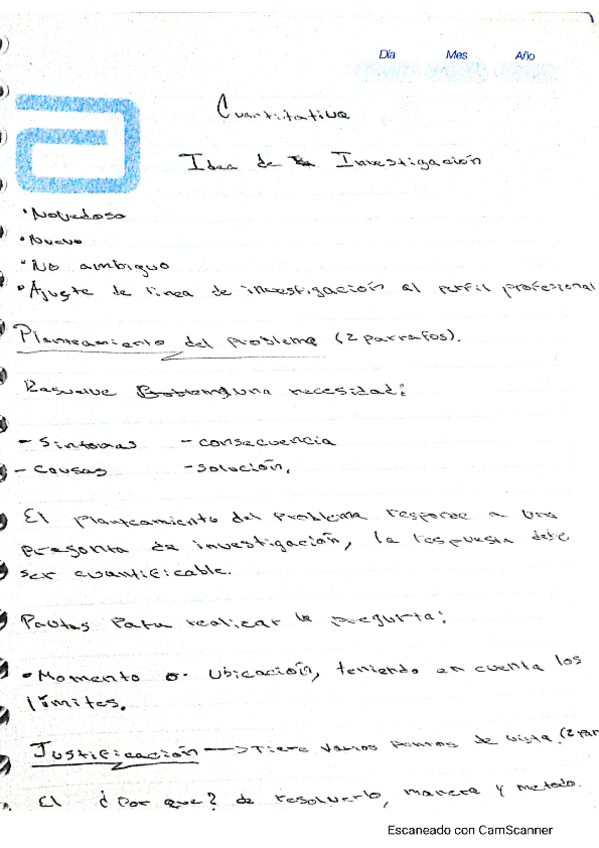 Día Mes Año
Cuantitativa
Idea de Investigación
• Novedoso
• Nuevo
• No ambiguo
• Ajuste de linea de investigación al perfil profesional
Planteamiento del problema (2 parrafos).
Resuelve una necesidad:
- Sintomas - consecuencia
- Causas - solución.
El planteamiento del problema responde a una
pregunta de investigación, la respuesta debe
ser cuantificable.
Pautas Para realizar la pregunta:
• Momento o ubicación, teniendo en cuenta los
límites.
Justificación —> Tiene varios puntos de vista (2 par
El ¿Por que? de resolverlo, manera y metodo.
Escaneado con CamScanner